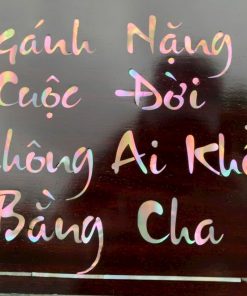 Gánh Nặng
Cuộc Đời
Không Ai Khổ
Bằng Cha